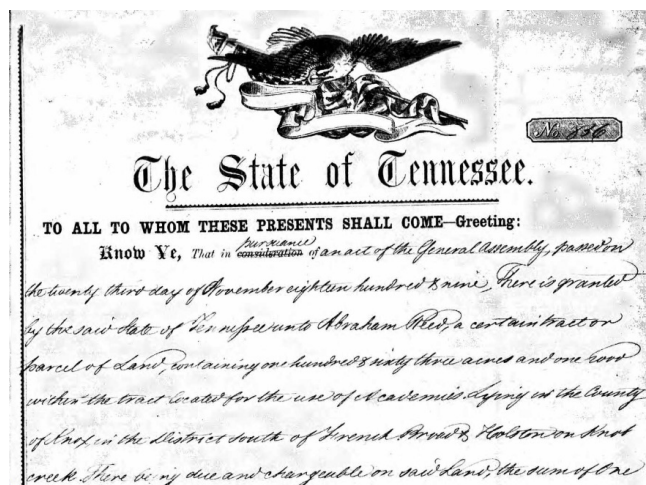 No 236
The State of Tennessee.
TO ALL TO WHOM THESE PRESENTS SHALL COME—Greeting:
Know Ye, That in consideration pursuance of an act of the General Assembly, passed on
the twenty third day of November eighteen hundred & nine, There is granted
by the said State of Tennessee unto Abraham Reed, a certain tract or
parcel of Land, containing one hundred & sixty three acres and one rood
within the tract located for the use of Academies Lying in the County
of Knox, in the District South of French Broad & Holston on Knob
creek There being due and chargeable on said Land, the sum of One